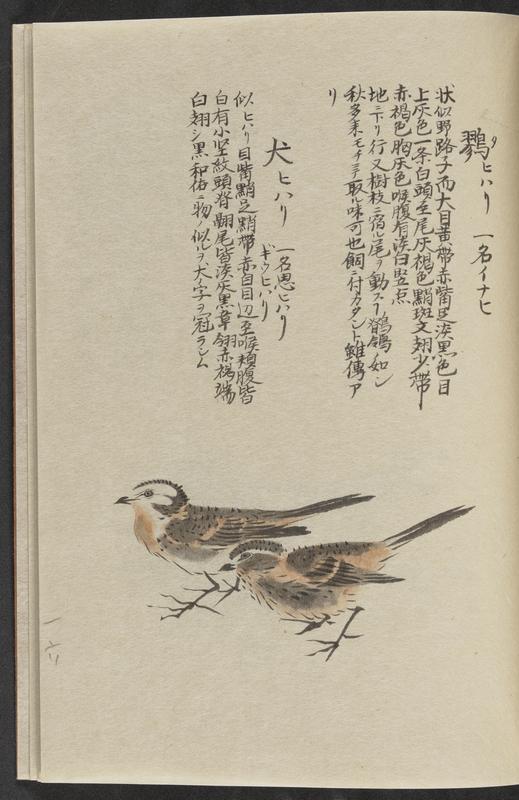 鷚タヒハリ 一名イナヒ
状似野路子而大目黄帯赤觜足淡黒色目
上灰色一条白頭至尾灰褐色黧斑文翅少帯
赤褐色胸灰色喉腹有淡白竪点
地ニ下リ行又樹枝ニ宿ル尾ヲ動ス 鶺鴒ノ如シ
秋多来モチニテ取ル味可也飼ニ付カタシト雖傳ア
リ
犬ヒハリ 一名思ヒハリ
ギウヒハリ
似ヒハリ目觜黧足黧帯赤白目辺至喉頬腹皆
白有小竪紋頭脊翮尾皆淡灰黒 翎赤褐端
白翅シ黒和俗ニ物ノ似ルヲ犬ノ字ヲ冠ラシム
一六